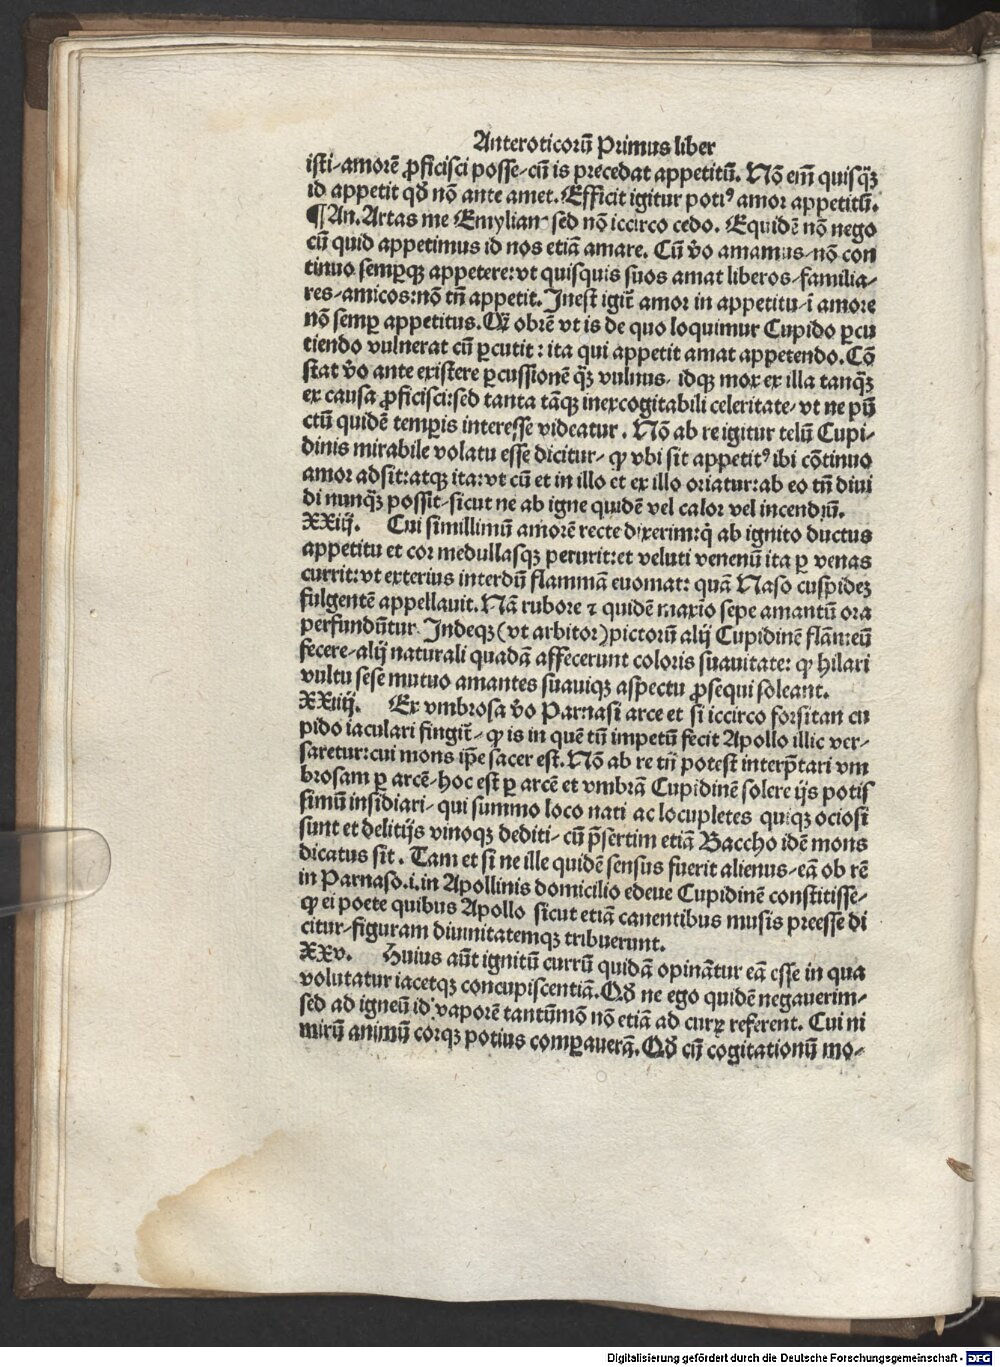 Anteroticorū Primus liber
isti-amorē ꝓficisci posse-cū is precedat appetitū. Nō em̄ quisq̄ꝫ
id appetit qd̄ nō ante amet. Efficit igitur potiꝰ amor appetitū.
¶An. Artas me Emylian sed nō iccirco cedo. Equidē nō nego
cū quid appetimus id nos etiā amare. Cū v̄o amamus-nō con
tinuo semꝑqꝫ appetere: vt quisquis suos amat liberos-familia-
res-amicos: nō tn̄ appetit. Inest igit̄ amor in appetitu-ī amore
nō semꝑ appetitus. obrē vt is de quo loquimur Cupido ꝑcu
tiendo vulnerat cū ꝑcutit: ita qui appetit amat appetendo. Cō
stat v̄o ante existere ꝑcussionē q̄ꝫ vulnus. idqꝫ mox ex illa tanq̄ꝫ
ex causa ꝓficisci: sed tanta tāqꝫ inexcogitabili celeritate-vt ne pū
ctū quidē temꝑis interesse videatur. Nō ab re igitur telū Cupi-
dinis mirabile volatu esse dicitur-ꝙ vbi sit appetitꝰ ibi cōtinuo
amor adsit: atqꝫ ita: vt cū et in illo et ex illo oriatur: ab eo tn̄ diui
di nunq̄ꝫ possit-sicut ne ab igne quidē vel calor vel incendiū.
XXiij. Cui simillimū amorē recte dixerim: q̇ ab ignito ductus
appetitu et cor medullasqꝫ perurit: et veluti venenū ita ꝑ venas
currit: vt exterius interdū flammā euomat: quā Naso cuspideꝫ
fulgentē appellauit. Nā rubore ⁊ quidē maxīo sepe amantū ora
perfundūtur. Indeqꝫ (vt arbitor) pictorū alij Cupidinē flāmeū
fecere-alij naturali quadā affecerunt coloris suauitate: ꝙ hilari
vultu sese mutuo amantes suauiqꝫ aspectu ꝓsequi soleant.
XXiiij. Ex vmbrosa v̄o Parnasi arce et si iccirco forsitan cu
pido iaculari fingit̄-ꝙ is in quē tū impetū fecit Apollo illic ver-
saretur: cui mons ip̄e sacer est. Nō ab re tn̄ potest interp̄tari vm
brosam ꝑ arcē-hoc est ꝑ arcē et vmbrā Cupidinē solere ijs potis
simū insidiari-qui summo loco nati ac locupletes quiqꝫ ociosi
sunt et delitijs vinoqꝫ dediti-cū p̄sertim etiā Baccho idē mons
dicatus sit. Tam et si ne ille quidē sensus fuerit alienus-eā ob rē
in Parnaso .i. in Apollinis domicilio edeue Cupidinē constitisse-
ꝙ ei poete quibus Apollo sicut etiā canentibus musis preesse di
citur-figuram diuinitatemqꝫ tribuerunt.
XXv. Huius aūt ignitū currū quidā opinātur eā esse in qua
volutatur iacetqꝫ concupiscentiā. Qd̄ ne ego quidē negauerim-
sed ad igneū id vaporē tantūmō nō etiā ad currꝫ referent. Cui ni
mirū animū corqꝫ potius comꝑauerā. Qd̄ cū cogitationū mo-
Digitalisierung gefördert durch die Deutsche Forschungsgemeinschaft - DFG